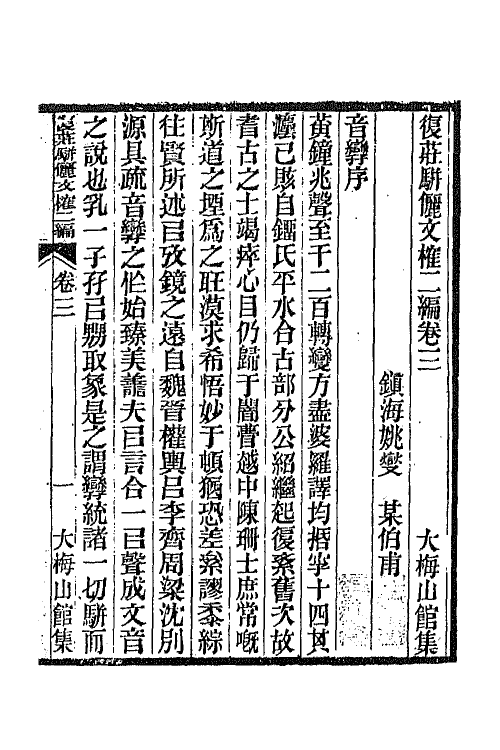 復莊駢儷文榷二編卷三　大梅山館集
鎮海姚燮　某伯甫
音孿序
黃鐘兆聲至千二百轉變方盡婆羅譯均栝宰十四其
灋已賅自鐂氏平水合古部分公紹繼起復紊舊次故
耆古之士竭瘁心目仍歸于闇曹越中陳珊士庶常嘅
斯道之堙爲之㫬漠求希悟妙于頓猶恐差籴謬黍綜
往賢所述㠯攷鏡之遠自魏晉權輿呂李齊周梁沈別
源具疏音孿之恉始臻美譫夫㠯言合一㠯聲成文音
之說也乳一子孖㠯嬲取象是之謂孿統諸一切駢而
復莊駢儷文榷二編　卷三　一　大梅山館集